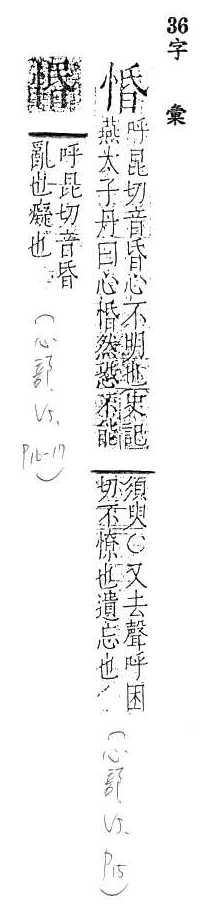 36字彙
惛
呼昆切音昏心不明也史記
燕太子丹曰心惛然恐不能
須臾○又去聲呼困
切不憭也遺忘也
(心部 V5. P15)
惽
呼昆切音昏
亂也癡也
(心部 V5. P16-17)